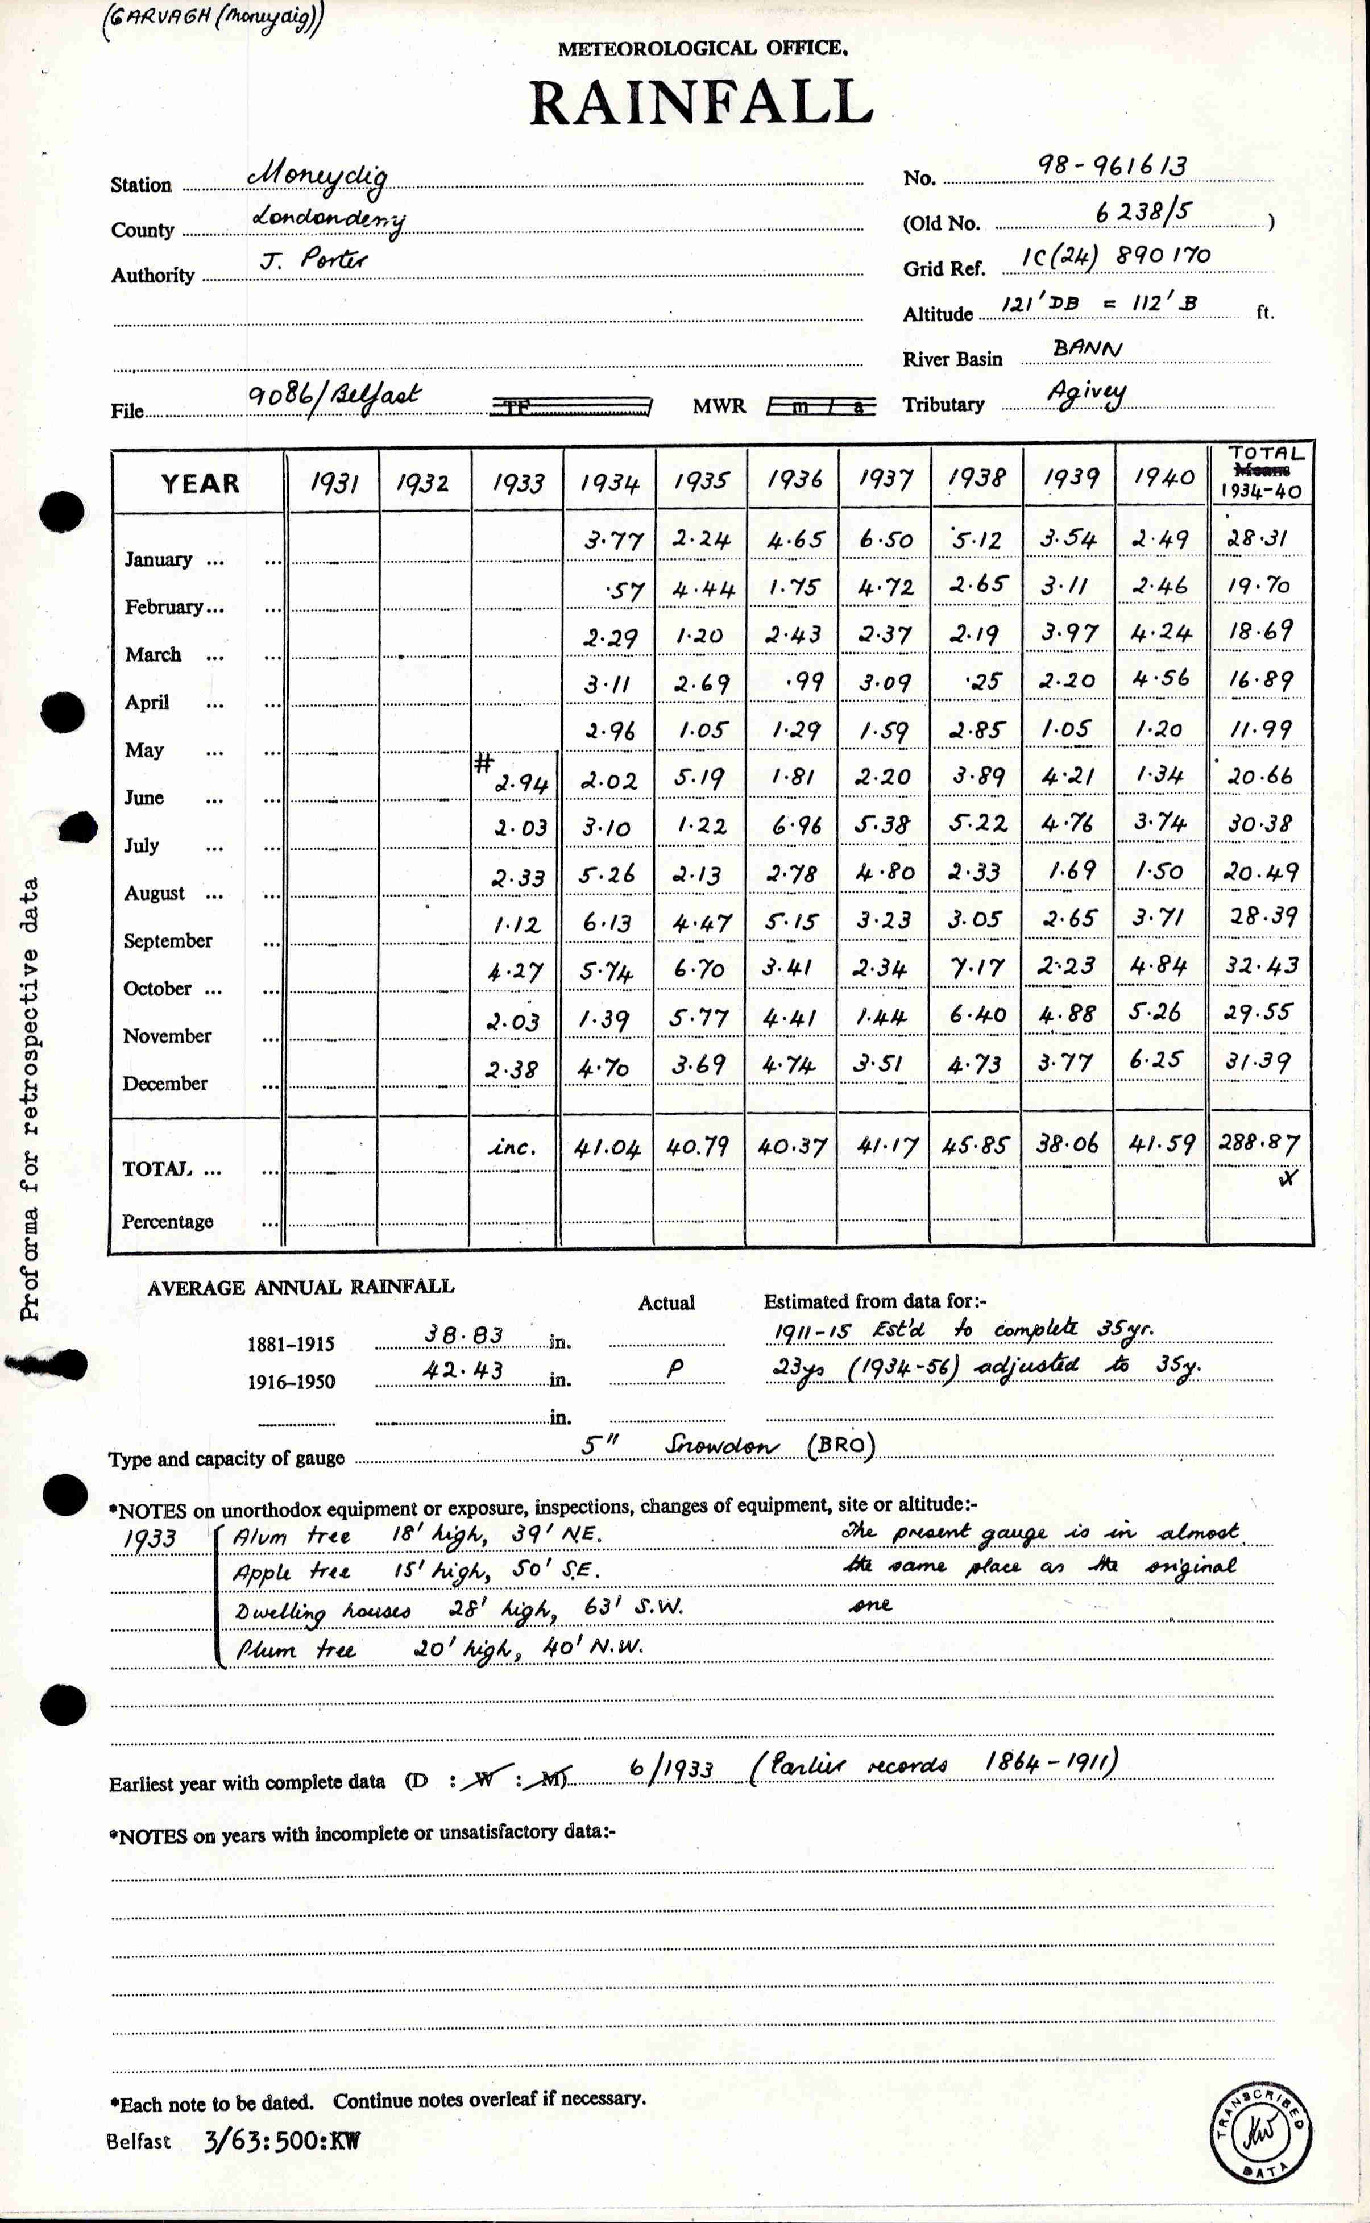 (GARVAGH (Moneydig))
METEOROLOGICAL OFFICE.
RAINFALL
Station Moneydig No. 98-961613
County Londonderry (Old No. 6238/5 )
Authority J. Porter Grid Ref. IC(24) 890 170
Altitude 121' DB = 112' B ft.
River Basin BANN
File 9086/Belfast TF MWR m a Tributary Agivey
YEAR 1931 1932 1933 1934 1935 1936 1937 1938 1939 1940 TOTAL Means 1934-40
January ... ... 3.77 2.24 4.65 6.50 5.12 3.54 2.49 28.31
February ... ... .57 4.44 1.75 4.72 2.65 3.11 2.46 19.70
March ... ... 2.29 1.20 2.43 2.37 2.19 3.97 4.24 18.69
April ... ... 3.11 2.69 .99 3.09 .25 2.20 4.56 16.89
May ... ... 2.96 1.05 1.29 1.59 2.85 1.05 1.20 11.99
June ... ... # 2.94 2.02 5.19 1.81 2.20 3.89 4.21 1.34 20.66
July ... ... 2.03 3.10 1.22 6.96 5.38 5.22 4.76 3.74 30.38
August ... ... 2.33 5.26 2.13 2.78 4.80 2.33 1.69 1.50 20.49
September ... 1.12 6.13 4.47 5.15 3.23 3.05 2.65 3.71 28.39
October ... ... 4.27 5.74 6.70 3.41 2.34 7.17 2.23 4.84 32.43
November ... 2.03 1.39 5.77 4.41 1.44 6.40 4.88 5.26 29.55
December ... 2.38 4.70 3.69 4.74 3.51 4.73 3.77 6.25 31.39
TOTAL ... ... inc. 41.04 40.79 40.37 41.17 45.85 38.06 41.59 288.87
Percentage ...
Proforma for retrospective data
AVERAGE ANNUAL RAINFALL
Actual Estimated from data for:-
1881-1915 38.83 in. 1911-15 Est'd to complete 35yr.
1916-1950 42.43 in. P 23ys (1934-56) adjusted to 35y.
in.
Type and capacity of gauge 5" Snowdon (BRO)
*NOTES on unorthodox equipment or exposure, inspections, changes of equipment, site or altitude:-
1933 Alum tree 18' high, 39' NE. The present gauge is in almost
Apple tree 15' high, 50' S.E. the same place as the original
Dwelling houses 28' high, 63' S.W. one
Plum tree 20' high, 40' N.W.
Earliest year with complete data (D : W : M) 6/1933 (Earlier records 1864-1911)
*NOTES on years with incomplete or unsatisfactory data:-
*Each note to be dated. Continue notes overleaf if necessary.
Belfast 3/63:500:KW
TRANSCRIBED
KW
DATA